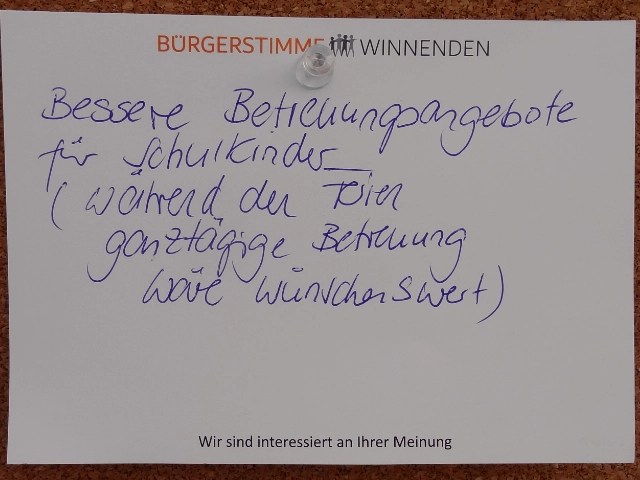 BÜRGERSTIMME WINNENDEN
Bessere Betreuungsangebote
für Schulkinder
(während der Ferien
ganztägige Betreuung
wäre wünschenswert)
Wir sind interessiert an Ihrer Meinung